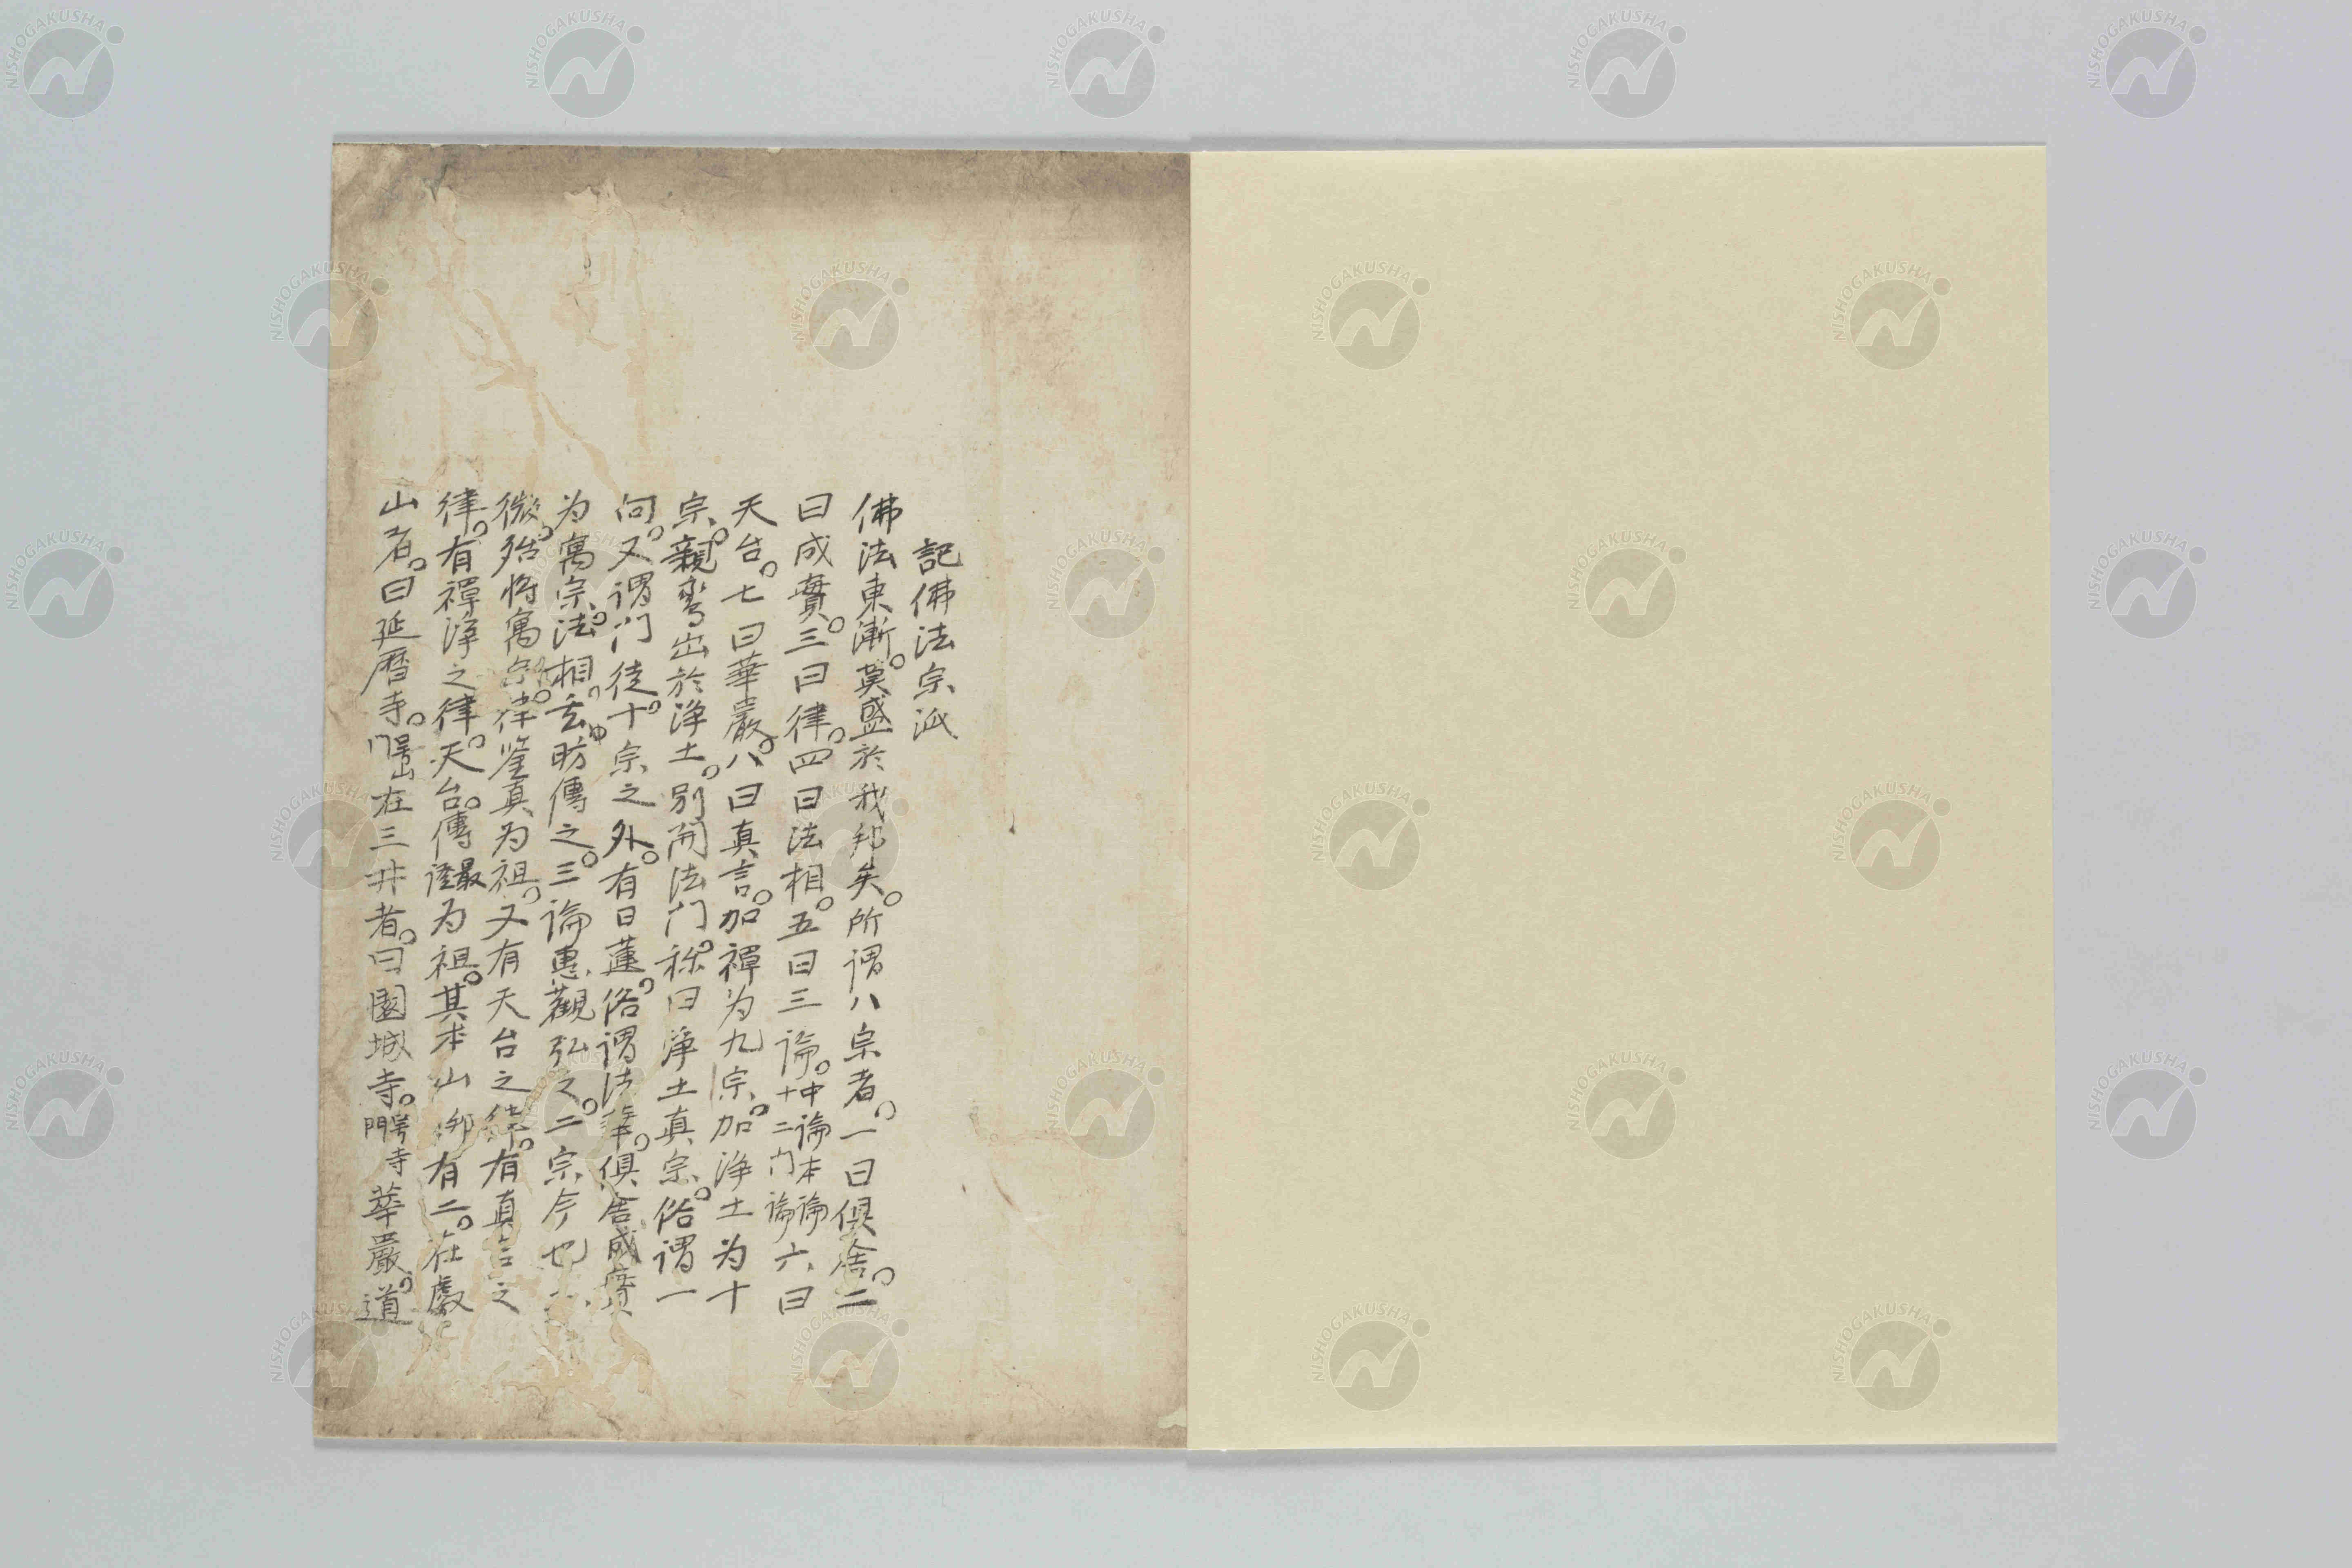 記佛法宗派
佛法東漸。莫盛於我邦矣。所謂八宗者。一曰倶舍。二
曰成實。三曰律。四曰法相。五曰三論。中論本論十二门論六曰
天台。七曰華嚴。八曰真言。加禪为九宗。加浄土为十
宗。親鸞出於浄土。別開法门。称曰浄土真宗。俗謂一
向。又謂门徒。十宗之外。有日蓮。俗謂法華。倶舎成實
为寓宗。法相。玄昉傳之。三論惠觀弘之。二宗今也
微。殆將寓宗。律鉴真为祖。又有天台之律。有真言之
律。有禪浄之律。天台。傳最澄为祖。其本山卿有二。在叡
山者。曰延暦寺。在三井者。曰園城寺。寺门華嚴。道
NISHOGAKUSHA